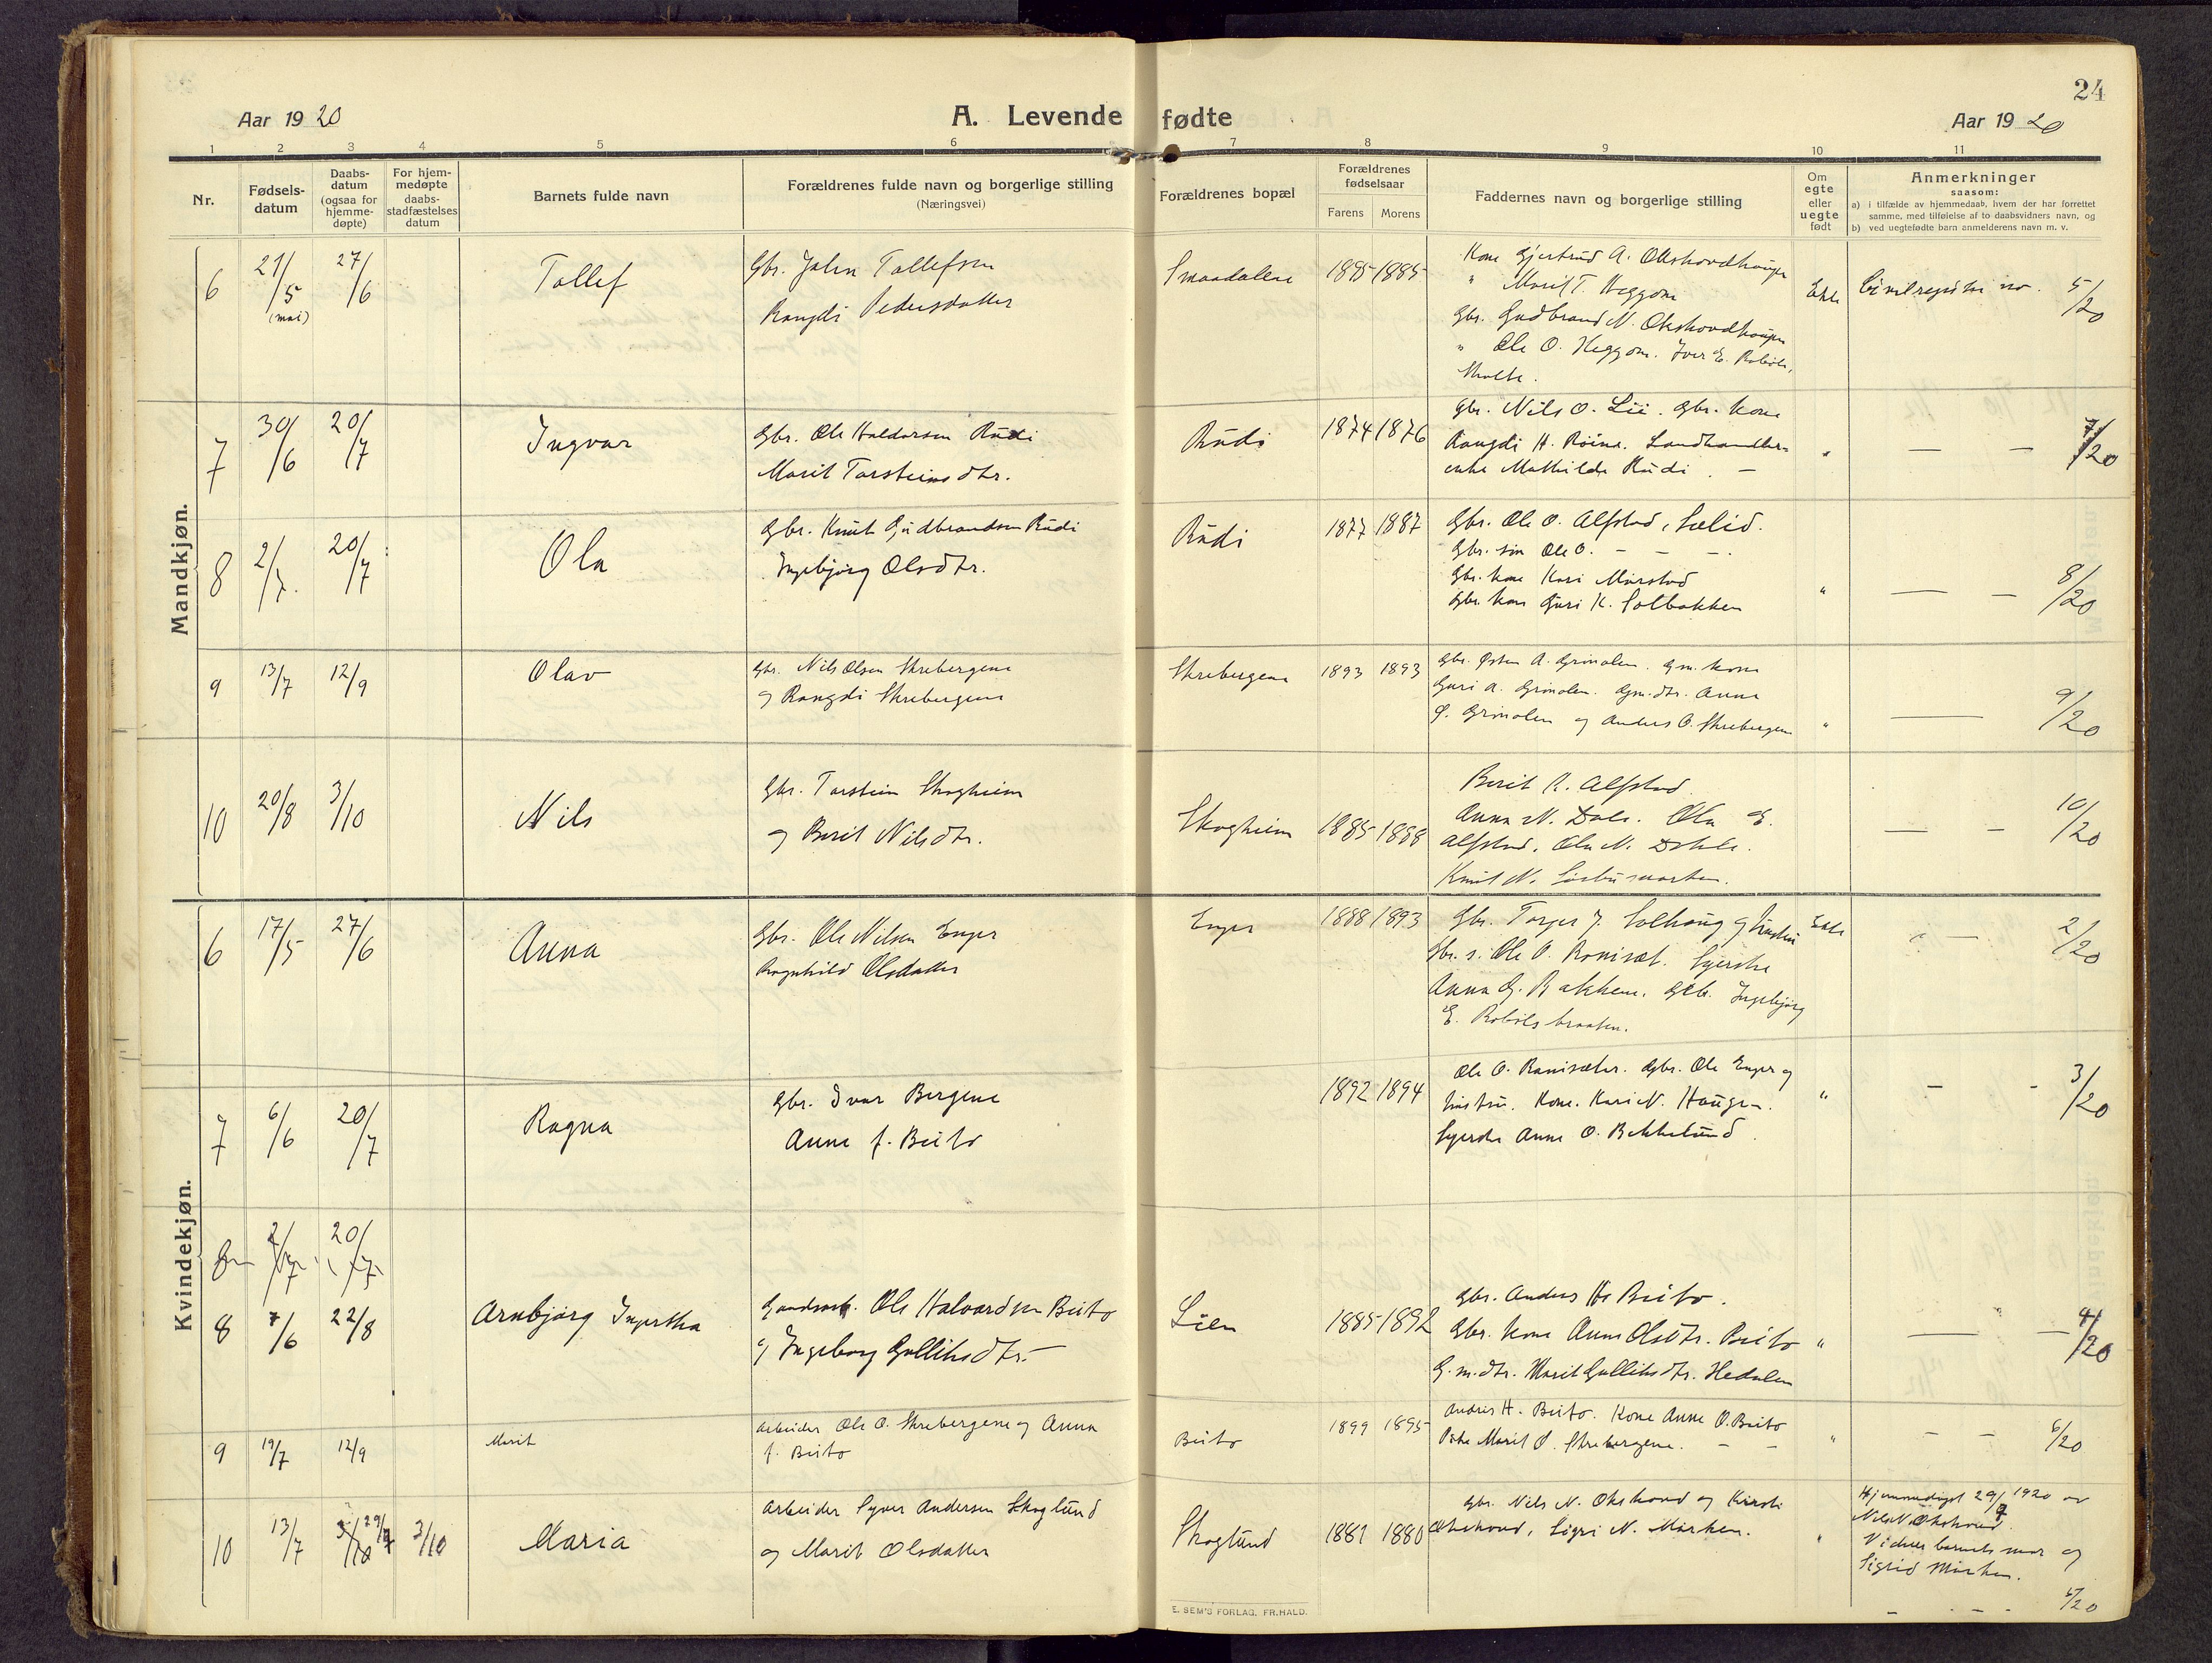 24
Aar 1920
A. Levende fødte
Aar 1920
1 2 3 4 5 6 7 8 9 10 11
Nr.
Fødsels-
datum
Daabs-
datum
(ogsaa for
hjemme-
døpte)
For hjem-
medøpte
daabs-
stadfæstelses
datum
Barnets fulde navn
Forældrenes fulde navn og borgerlige stilling
(Næringsvei)
Forældrenes bopæl
Forældrenes
fødselsaar
Farens Morens
Faddernes navn og borgerlige stilling
Om
egte
eller
uegte
født
Anmerkninger
saasom:
a) i tilfælde av hjemmedaab, hvem der har forrettet
samme, med tilføielse af to daabsvidners navn, og
b) ved uegtefødte barn anmelderens navn m. v.
Mandkjøn.
6 21/5 (mai) 27/6 Tollef
Gbr. John Tollefsen
Rangdi Pedersdatter
Smaadalene 1895 1885
Kone Gjertrud A. Okshovdhaugen
" Marit T. Heggom
Gbr. Gudbrand N. Okshovdhaugen
" Ole O. Heggom. Iver E. Robøle,
Egte
5/20
7 30/6 20/7 Ingvar
Gbr. Ole Haldorsen Rudi
Marit Torsteinsdtr.
Rudi 1874 1876
Gbr. Nils O. Lii. Gbr. kone
Rangdi H. Røine. Landhandler-
enke Mathilde Rudi. —
" — — 7/20
8 2/7. 20/7 Ola
Gbr. Knut Gudbrandsen Rudi
Ingebjørg Olsdtr.
Rudi 1877 1887
Gbr. Ole O. Alfstad, Lælid.
Gbr. søn Ole O. — — —.
Gbr. kone Kari Mørstad
Gbr. kone Guri K. Solbakken
" — — 8/20
9 13/7 12/9 Olav
Gbr. Nils Olsen Skrebergene
og Rangdi Skrebergene
Skrebergene 1893 1893
Gbr. Østen A. Grinolen. Gm. kone
Guri A. Grinolen. Gm.dtr. Anne
Ø. Grinolen og Anders O. Skrebergene
" — 9/20
10 20/8 3/10 Nils
Gbr. Torstein Skogheim
og Berit Nilsdtr.
Skogheim 1885 1888
Berit K. Alfstad
Anna N. Dale. Ola E.
Alfstad. Ola N. Dahle.
Knut N.
— — 10/20
Kvindekjøn.
6 17/5 27/6 Anna
Gbr. Ole Nilsen Enger
Ragnhild Olsdatter
Enger 1888 1893
Gbr. Torger J. Solhaug og hustru
Gbr. s. Ole O. Ranisæt. Syerske
Anna G. Bakkene. Gbr. Ingebjørg
E. Robølsbraaten.
Egte
— 2/20
7 6/6 20/7 Ragna
Gbr. Ivar Bergene
Anne f. Beito
1892 1894
Ole O. Ranisæter. Gbr. Ole Enger og
hustru. Kone. Kari N. Haugen.
Syerske Anne O. Bekkelund.
" — - 3/20
8 2/7 20/7
8 7/6 22/8 Arnbjørg Ingertha
Gaardsarb. Ole Halvardsen Beito
og Ingeborg Gulliksdtr.—
Lien 1885 1892
Gbr. Anders H. Beito.
Gbr. kone Anne Olsdtr. Beito
G.m.dtr. Marit Gulliksdtr. Hedalen
" — — 4/20
9 19/7 12/9 Marit
Arbeider Ole O. Skrebergene og Anna
f. Beito
Beito 1899 1895
Andris H. Beito. Kone Anne O. Beito
Pike Marit O. Skrebergene. — —
" — — 6/20
10 13/7 3/10 29/7 3/10 Maria
Arbeider Syver Andersen Skoglund
og Marit Olsdatter
Skoglund 1881 1880
Gbr. Nils N. Okshovd og Kirsti
Okshovd, Sigri N. Mørken.
"
Hjemmedøpt 29/7 1920 av
Nils N. Okshovd.
Vidner barnets mor og
Sigrid Mørken.
5/20
E. SEM'S FORLAG, FR.HALD.